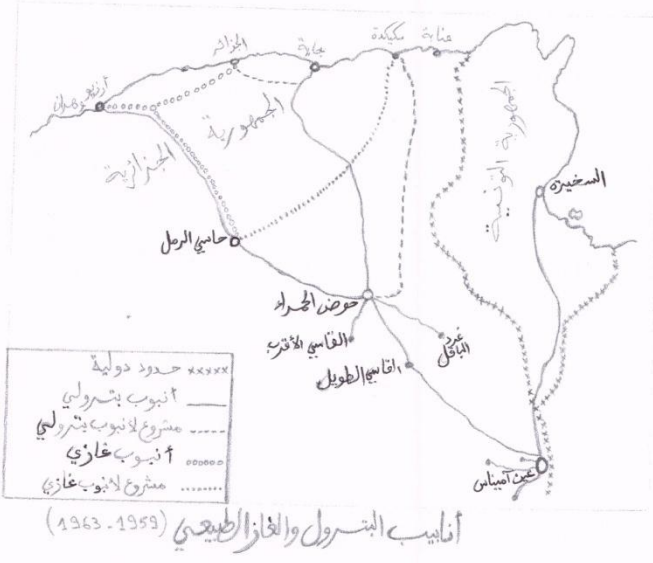 عنابة
سكيكدة
بجاية
الجزائر
أرزيو
وهران
الجمهورية
الجزائرية
الجمهورية التونسية
السخيرة
حاسي الرمل
حوض الحمراء
القاسي الأقرب
غرد
الباقل
القاسي الطويل
عين آميناس
xxxxx حدود دولية
أنبوب بترولي
مشروع لأنبوب بترولي
أنبوب غازي
مشروع لأنبوب غازي
أنابيب البترول والغاز الطبيعي (1959-1963)